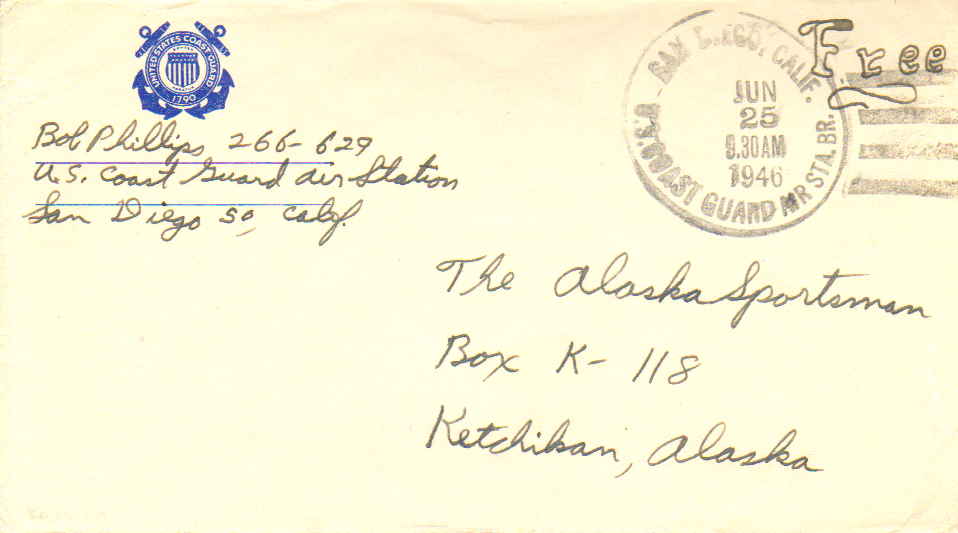 UNITED STATES COAST GUARD
1790
Bob Phillips 266-629
U.S. Coast Guard Air Station
San Diego 50, Calif.
SAN DIEGO, CALIF.
JUN
25
9.30AM
1946
U.S. COAST GUARD AIR STA. BR.
Free
The Alaska Sportsman
Box K-118
Ketchikan, Alaska